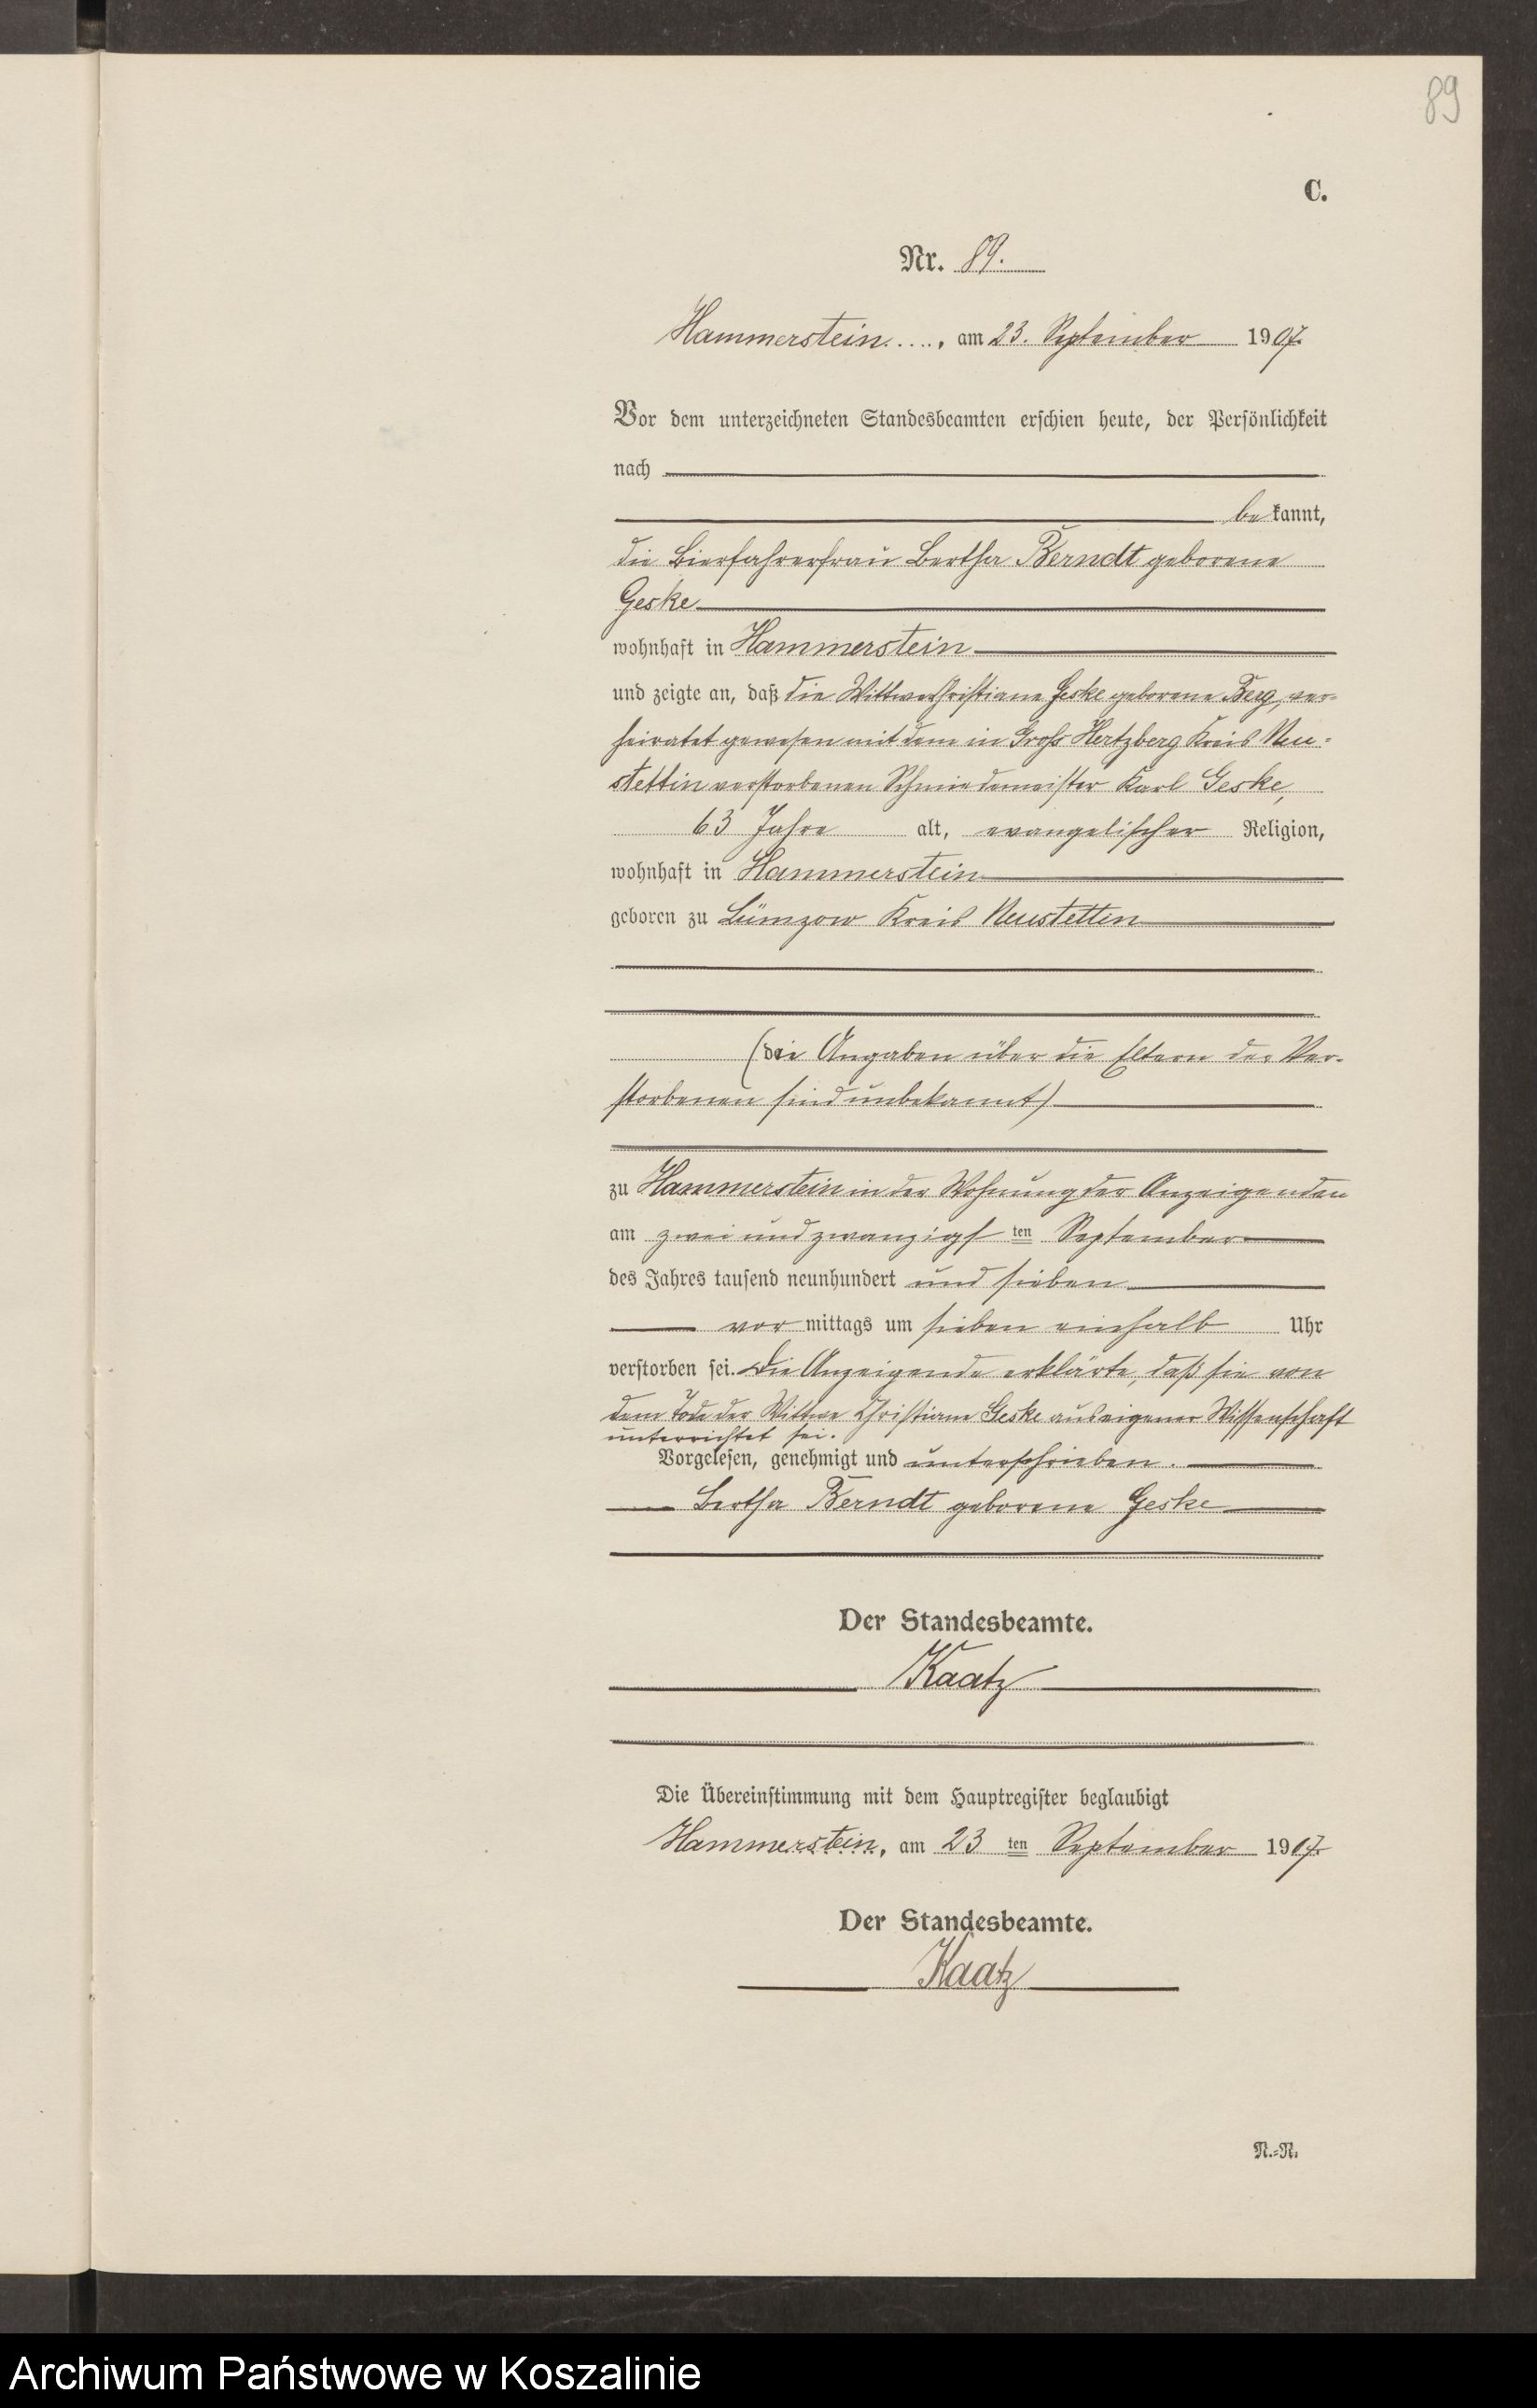 89
C.
Nr. 89.
Hammerstein...., am 23. September 1907.
Vor dem unterzeichneten Standesbeamten erschien heute, der Persönlichkeit
nach
be kannt,
die Bierfahrerfrau Bertha Berndt geborene
Geske
wohnhaft in Hammerstein
und zeigte an, daß die Wittwe Christiane Geske geborene Berg, ver-
heiratet gewesen mit dem in Gross Hertzberg Kreis Neu-
stettin verstorbenen Schmiedemeister Karl Geske,
63 Jahre alt, evangelischer Religion,
wohnhaft in Hammerstein
geboren zu Lümzow Kreis Neustettin
(die Angaben über die Eltern der Ver-
storbenen sind unbekannt)
zu Hammerstein in der Wohnung der Anzeigenden
am zwei und zwanzigs ten September
des Jahres tausend neunhundert und sieben
vor mittags um sieben einhalb Uhr
verstorben sei. Die Anzeigende erklärte, daß sie von
dem Tode der Wittwe Christiane Geske aus eigener Wissenschaft
unterrichtet sei.
Vorgelesen, genehmigt und unterschrieben.
Bertha Berndt geborene Geske
Der Standesbeamte.
Kaatz
Die Übereinstimmung mit dem Hauptregister beglaubigt
Hammerstein, am 23 ten September 1907.
Der Standesbeamte.
Kaatz
N.=N.
Archiwum Państwowe w Koszalinie